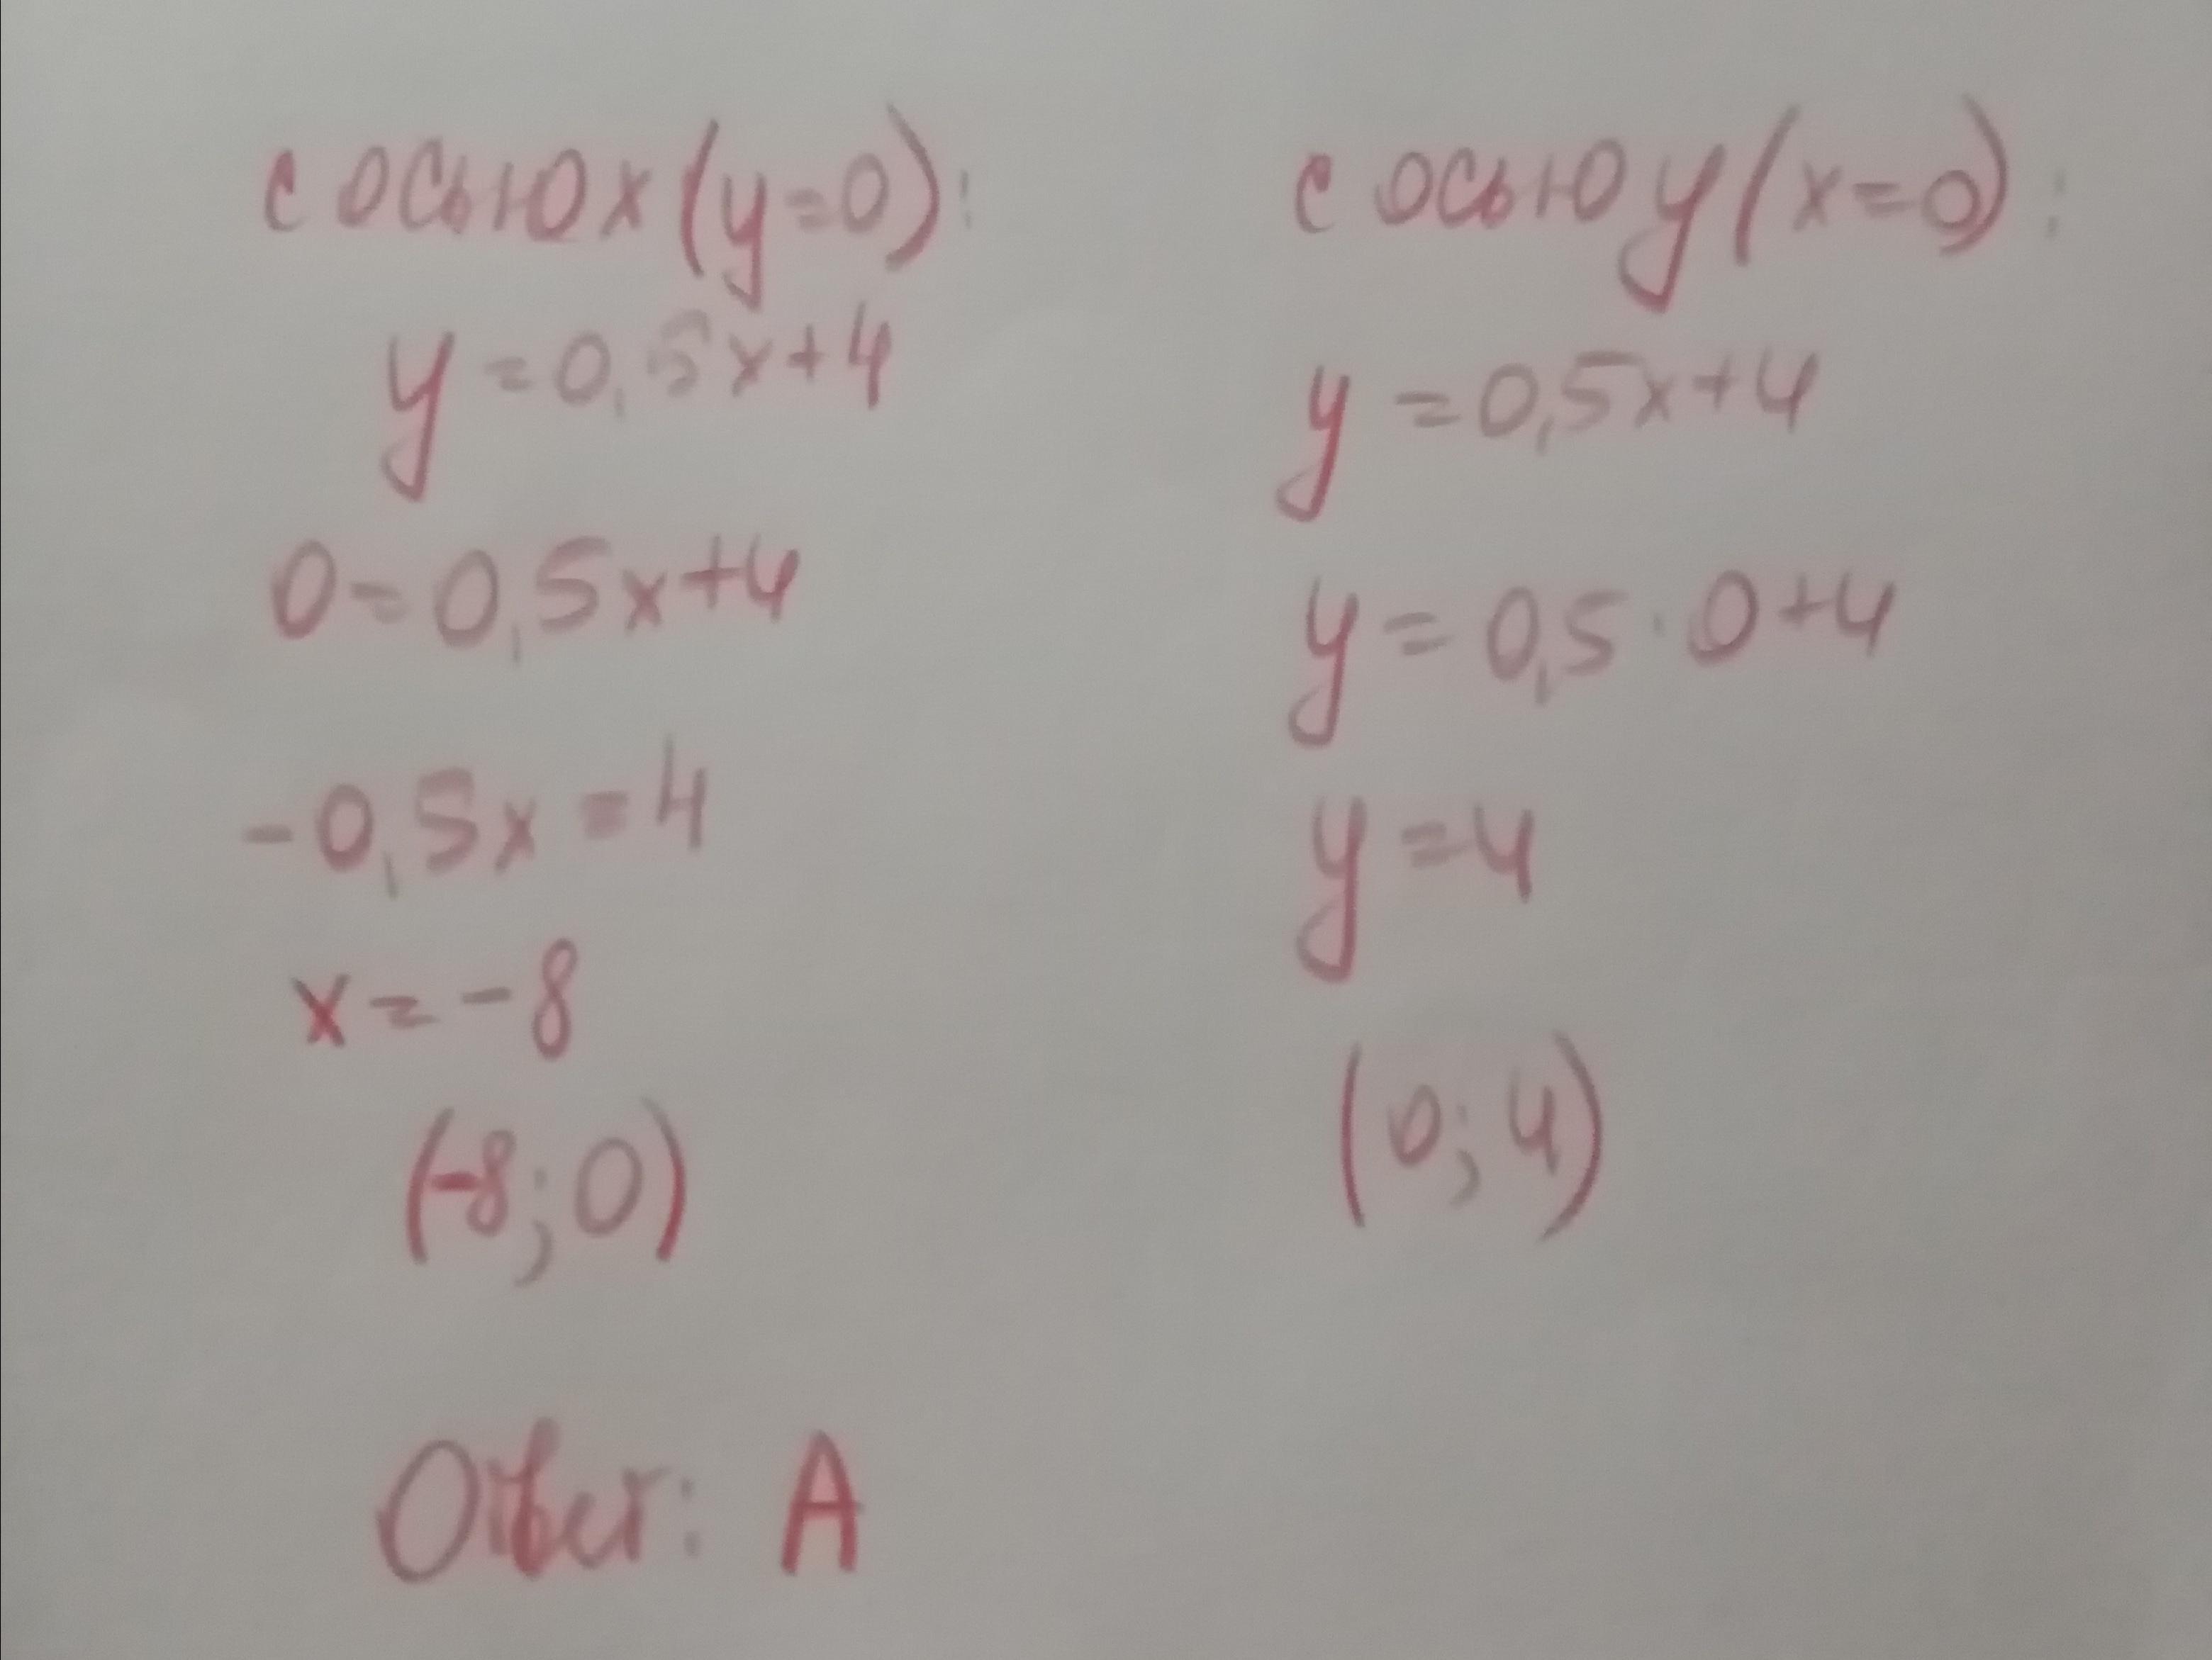 с осью x (y=0):
y = 0,5x+4
0=0,5x+4
-0,5x=4
x=-8
(-8;0)
с осью y (x=0):
y=0,5x+4
y=0,5·0+4
y=4
(0;4)
Ответ: А